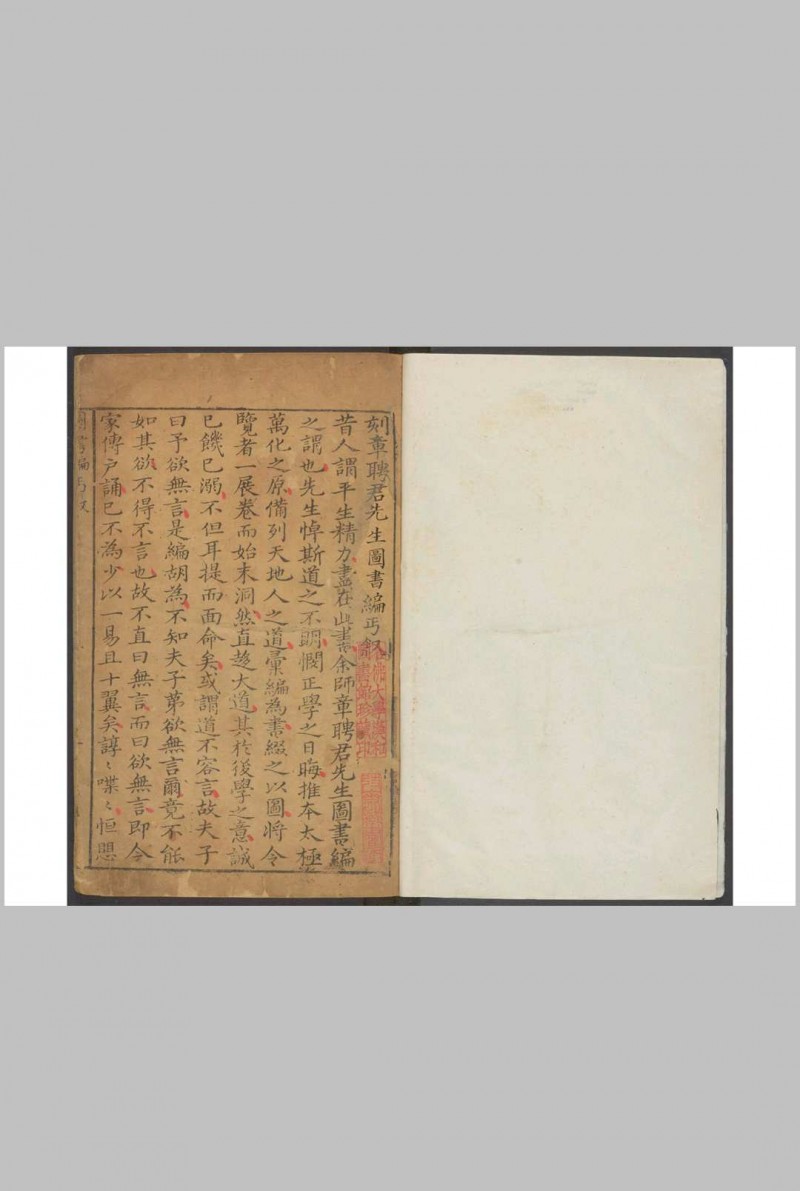 刻章聘君先生圖書編丐叙
昔人謂平生精力盡在此書余師章聘君先生圖書編
之謂也先生悼斯道之不明憫正學之日晦推本太極
萬化之原備列天地人之道彙編為書綴之以圖將令
覽者一展卷而始末洞然直趍大道其於後學之意誠
已饑已溺不但耳提而面命矣或謂道不容言故夫子
曰予欲無言是編胡為不知夫子第欲無言爾竟不能
如其欲不得不言也故不直曰無言而曰欲無言即令
家傳戶誦已不為少以一易且十翼矣諄〻喋〻恒愳